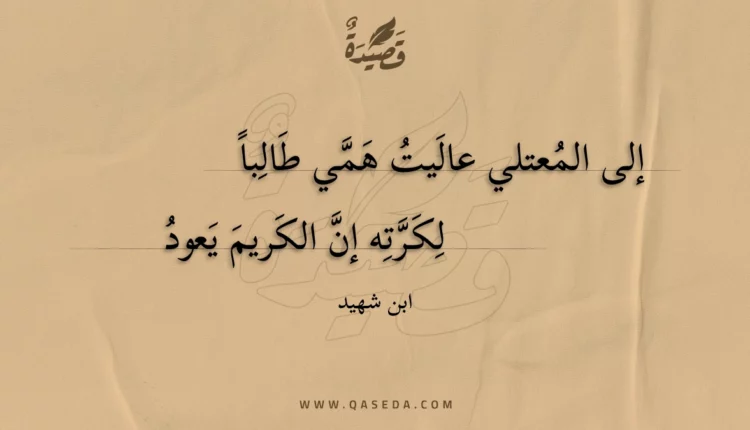 قَصِيْدَةٌ
إلى المُعتلي عالَيتُ هَمَّي طَالِباً
لِكَرَّتِه إنَّ الكَريمَ يَعودُ
ابن شهيد
WWW.QASEDA.COM